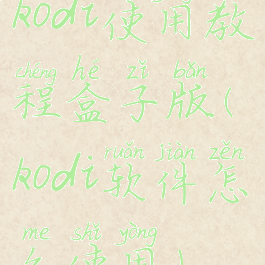 kodi使用教
chéng hé zǐ bǎn
程盒子版(
ruǎn jiàn zěn
kodi软件怎
me shǐ yòng
么使用)